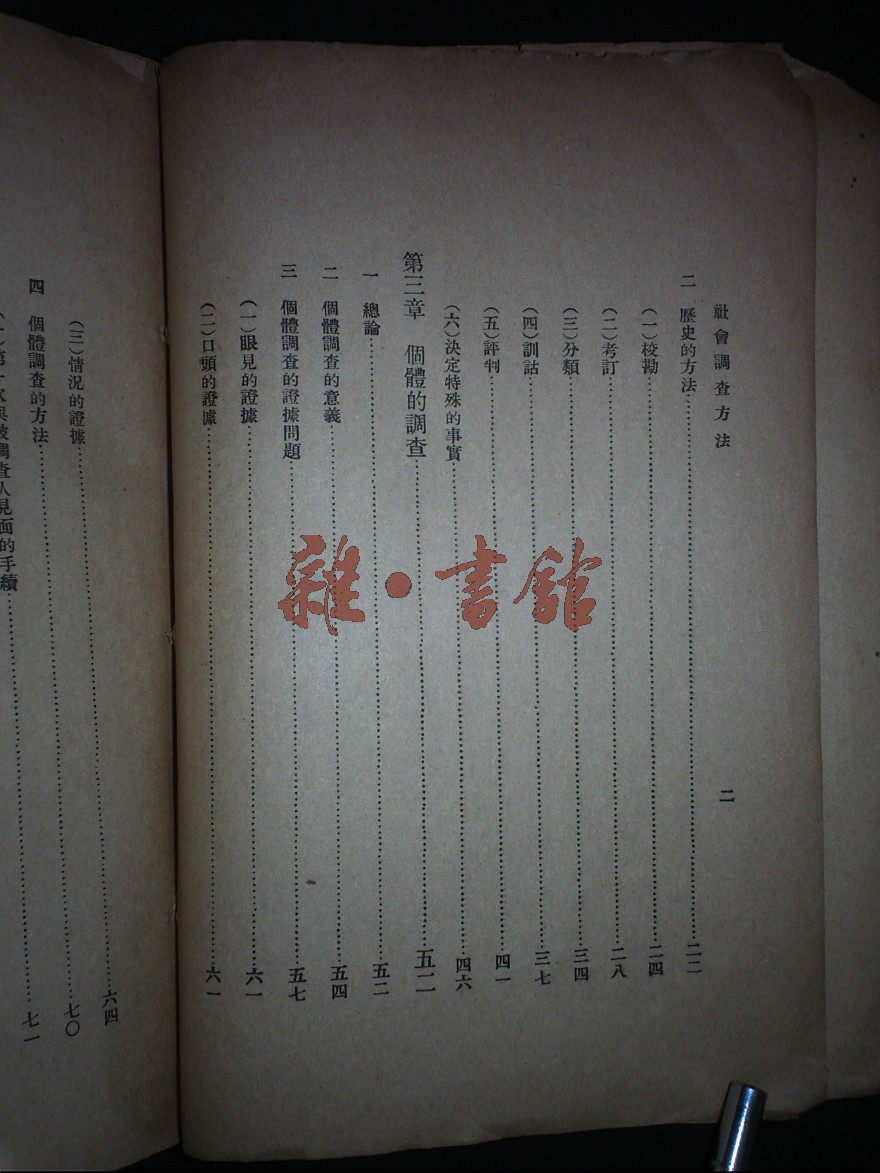 社會調查方法
二
二 歷史的方法……二二
(一)校勘……二四
(二)考訂……二八
(三)分類……三四
(四)訓詁……三七
(五)評判……四一
(六)決定特殊的事實……四六
第三章 個體的調查……五二
一 總論……五二
二 個體調查的意義……五四
三 個體調查的證據問題……五七
(一)眼見的證據……六一
(二)口頭的證據……六一
(三)情況的證據……六四
四 個體調查的方法……七〇
(一)第一次與被調查人見面的手續……七一
雜·書館